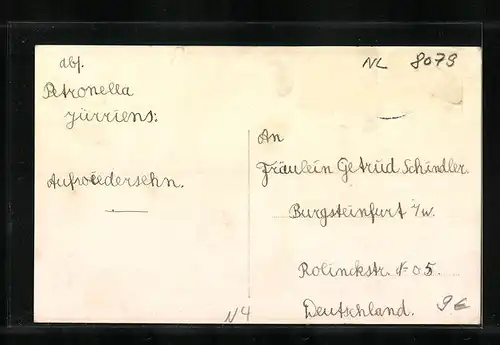 NL 8079
abs.
Petronella
Jürriens:
Aufwiedersehn.
An
Fräulein Getrud Schindler.
Burgsteinfurt i/w.
Rolinckstr. No 5.
Deutschland.
N4
9€